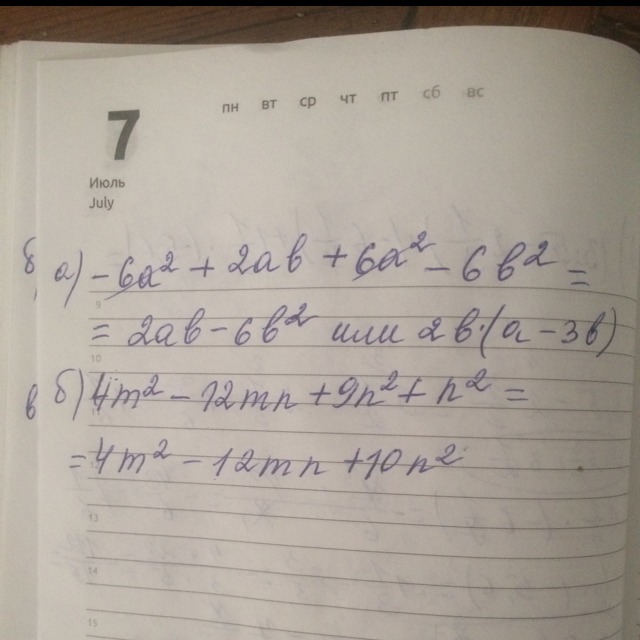 7
пн вт ср чт пт сб вс
Июль
July
а) -6a² + 2ab + 6a² - 6b² =
9
= 2ab - 6b² или 2b·(a - 3b)
10
б) 4m² - 12mn + 9n² + n² =
= 4m² - 12mn + 10n²
13
14
15